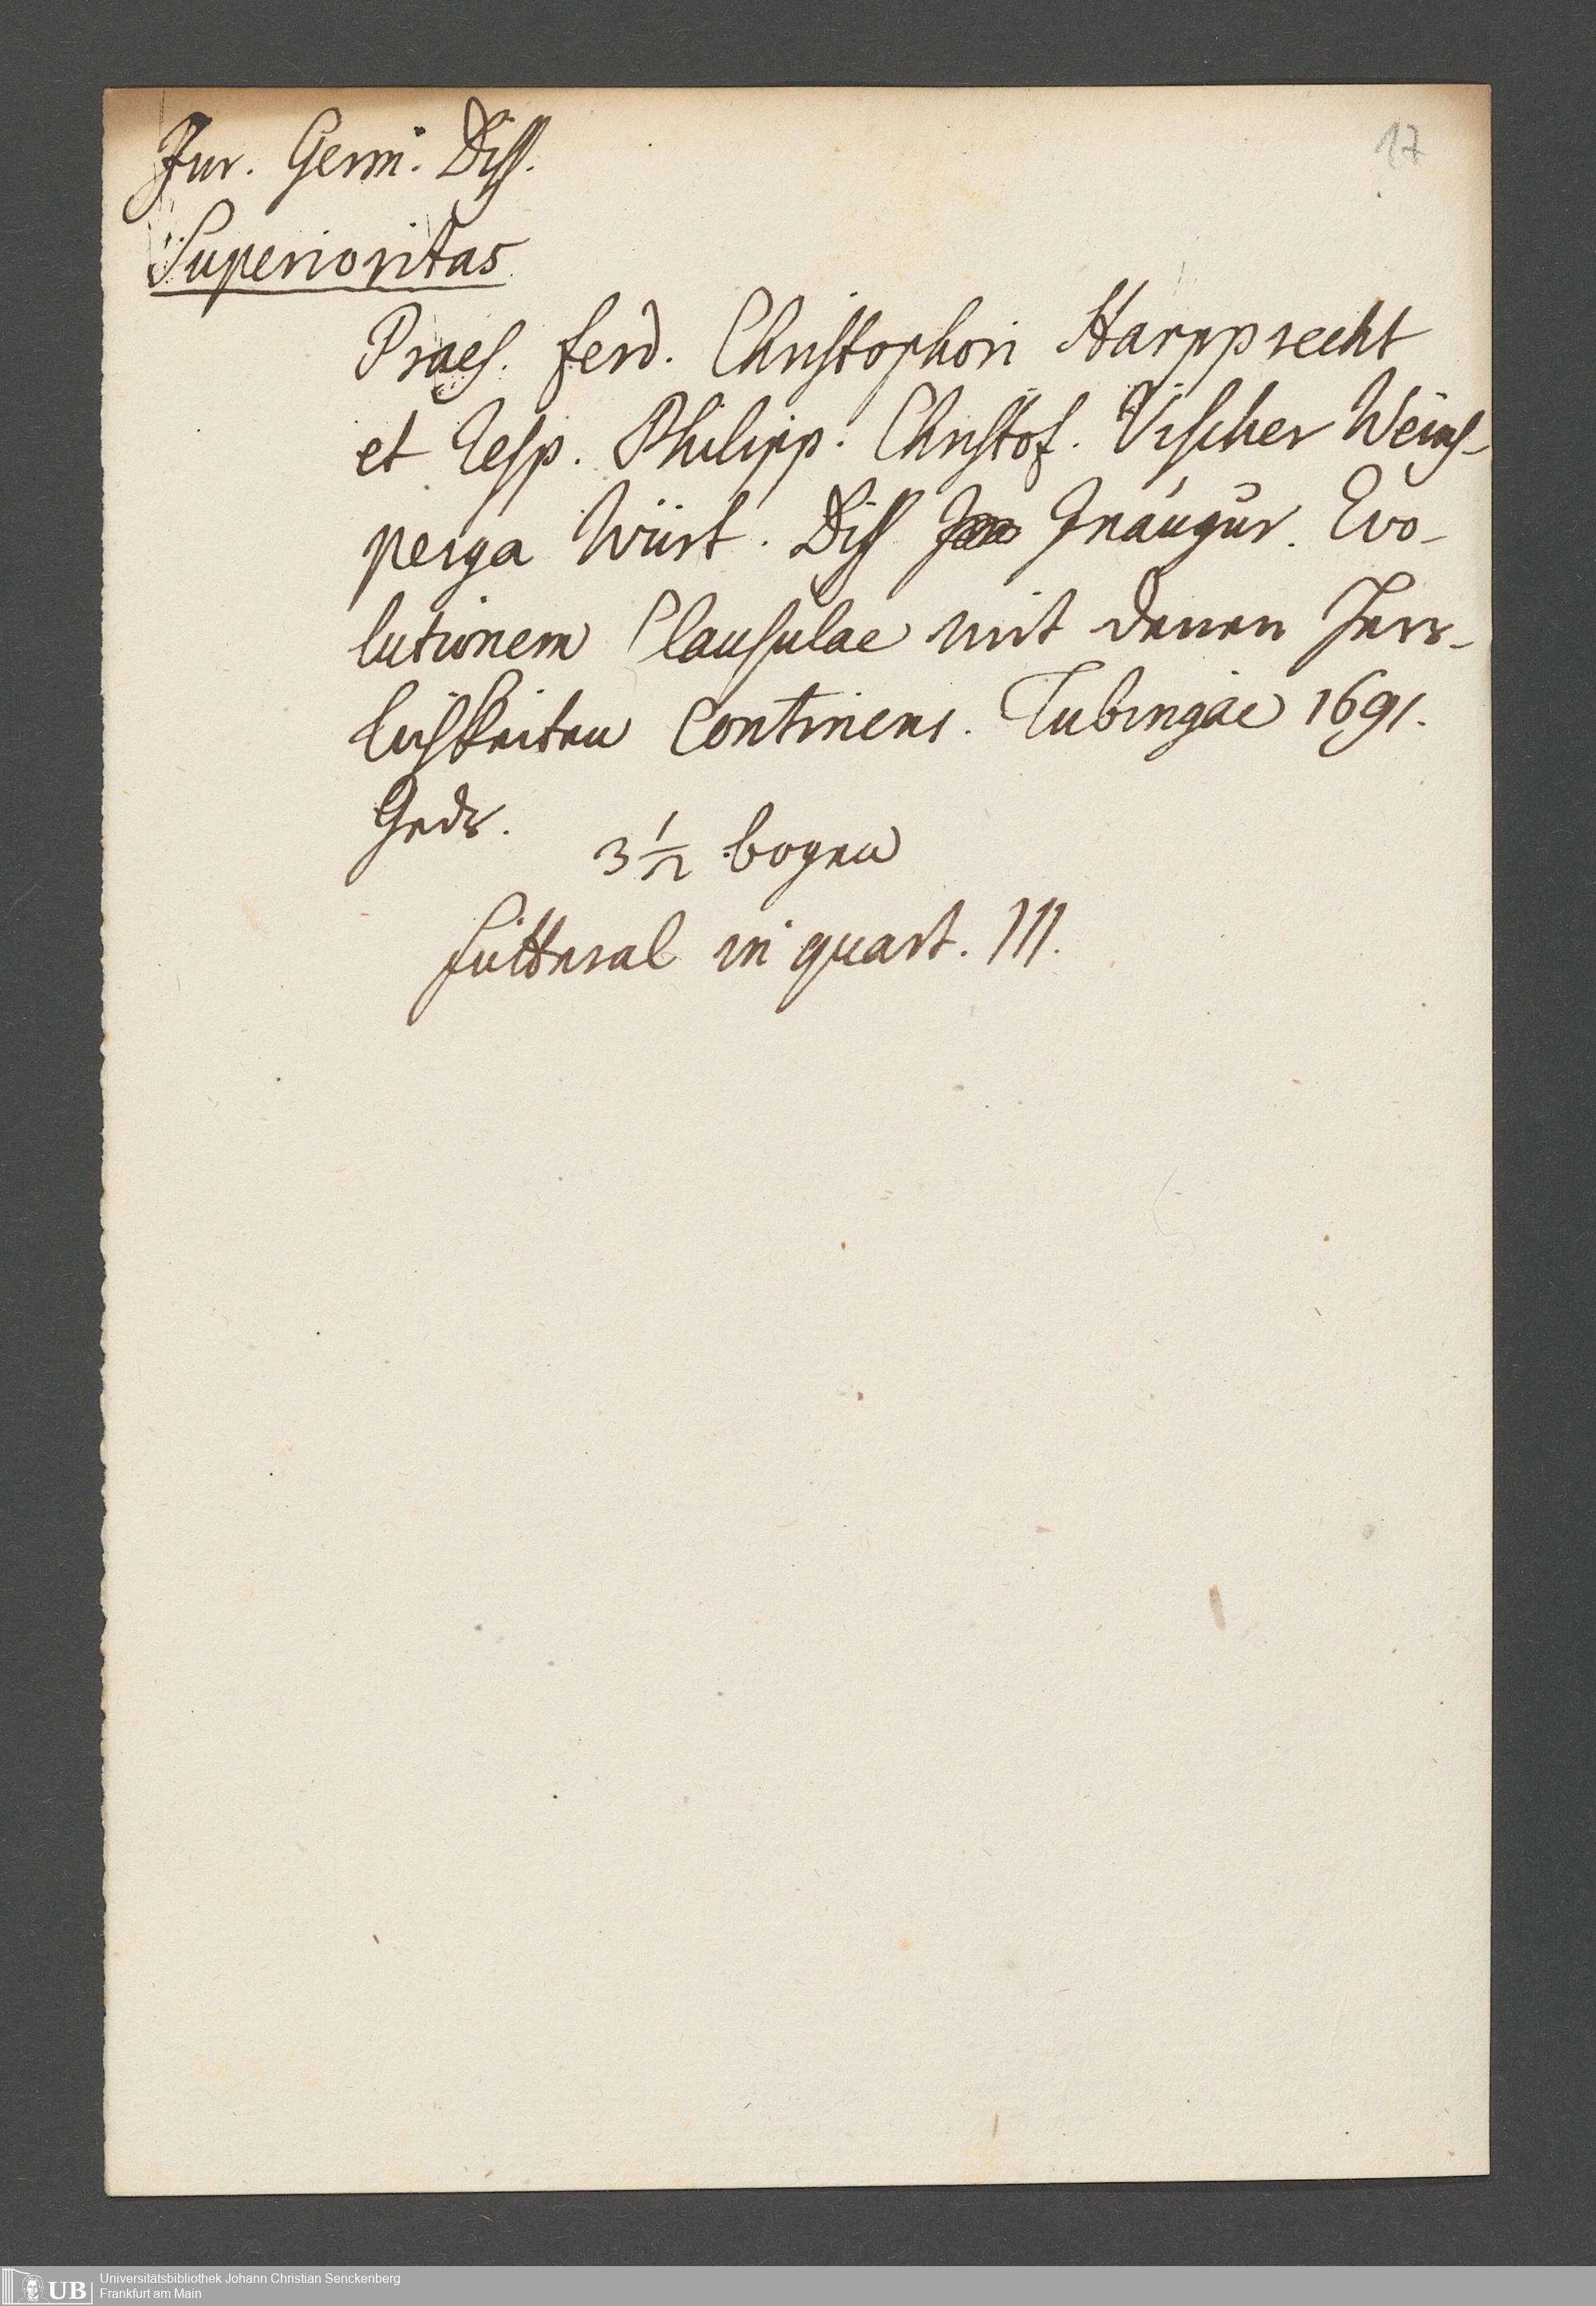 17
Jur. Germ. Diss.
Superioritas
Praes. Ferd. Christophori Harpprecht
et Resp. Philipp. Christof. Vischer Weins-
perga Würt. Diss Inaugur. Evo-
lutionem Clausulae mit denen Herr-
lichkeiten Continens. Tubingae 1691.
Gedr.
3 1/2 bogen
Futteral in quart. III.
UB Universitätsbibliothek Johann Christian Senckenberg
Frankfurt am Main